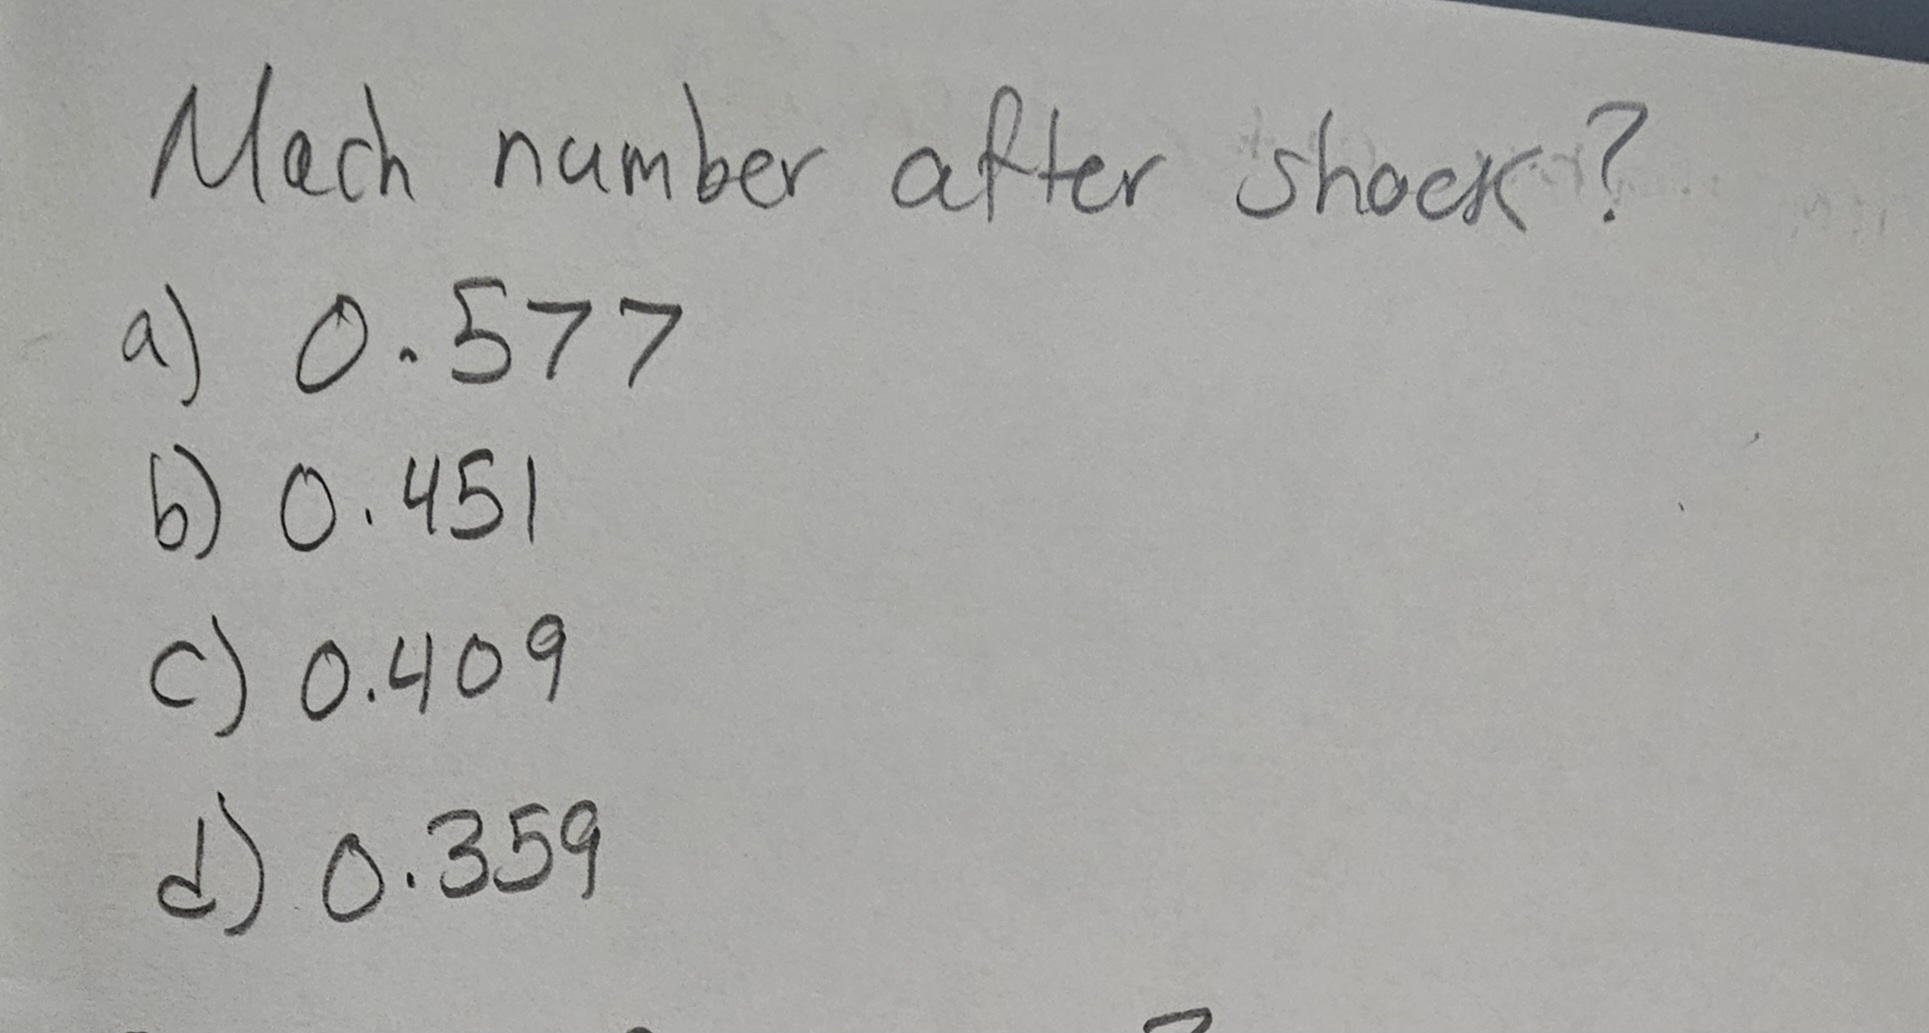 Mach number after shock?
a) 0.577
b) 0.451
c) 0.409
d) 0.359